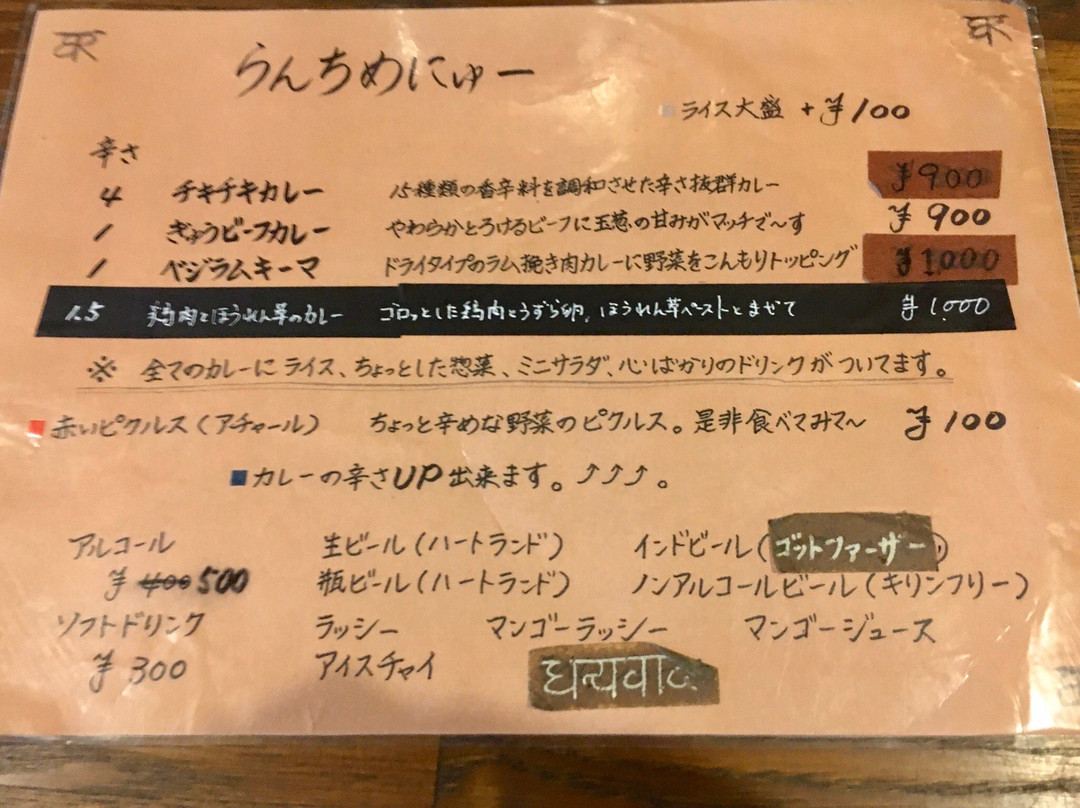 らんちめにゅー
■ライス大盛 +¥100
辛さ
4 チキチキカレー 15種類の香辛料を調和させた辛さ抜群カレー ¥900
1 ぎゅうビーフカレー やわらかとろけるビーフに玉葱の甘みがマッチで〜す ¥900
1 ベジラムキーマ ドライタイプのラム挽き肉カレーに野菜をこんもりトッピング ¥1,000
1.5 鶏肉とほうれん草のカレー ゴロっとした鶏肉とうずら卵、ほうれん草ペーストとまぜて ¥1,000
※ 全てのカレーにライス、ちょっとした惣菜、ミニサラダ、心ばかりのドリンクがついてます。
■赤いピクルス(アチャール) ちょっと辛めな野菜のピクルス。是非食べてみて〜 ¥100
■カレーの辛さUP出来ます。⤴⤴⤴。
アルコール 生ビール(ハートランド) インドビール(ゴットファーザー)
¥400 500 瓶ビール(ハートランド) ノンアルコールビール(キリンフリー)
ソフトドリンク ラッシー マンゴーラッシー マンゴージュース
¥300 アイスチャイ धन्यवाद